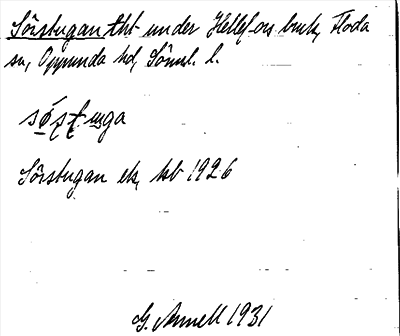 Sörstugan tht under Hellefors bruk, Floda
sn, Oppunda hd, Söml. l.
Sörstugan ek, kb 1926
G. Annell 1931